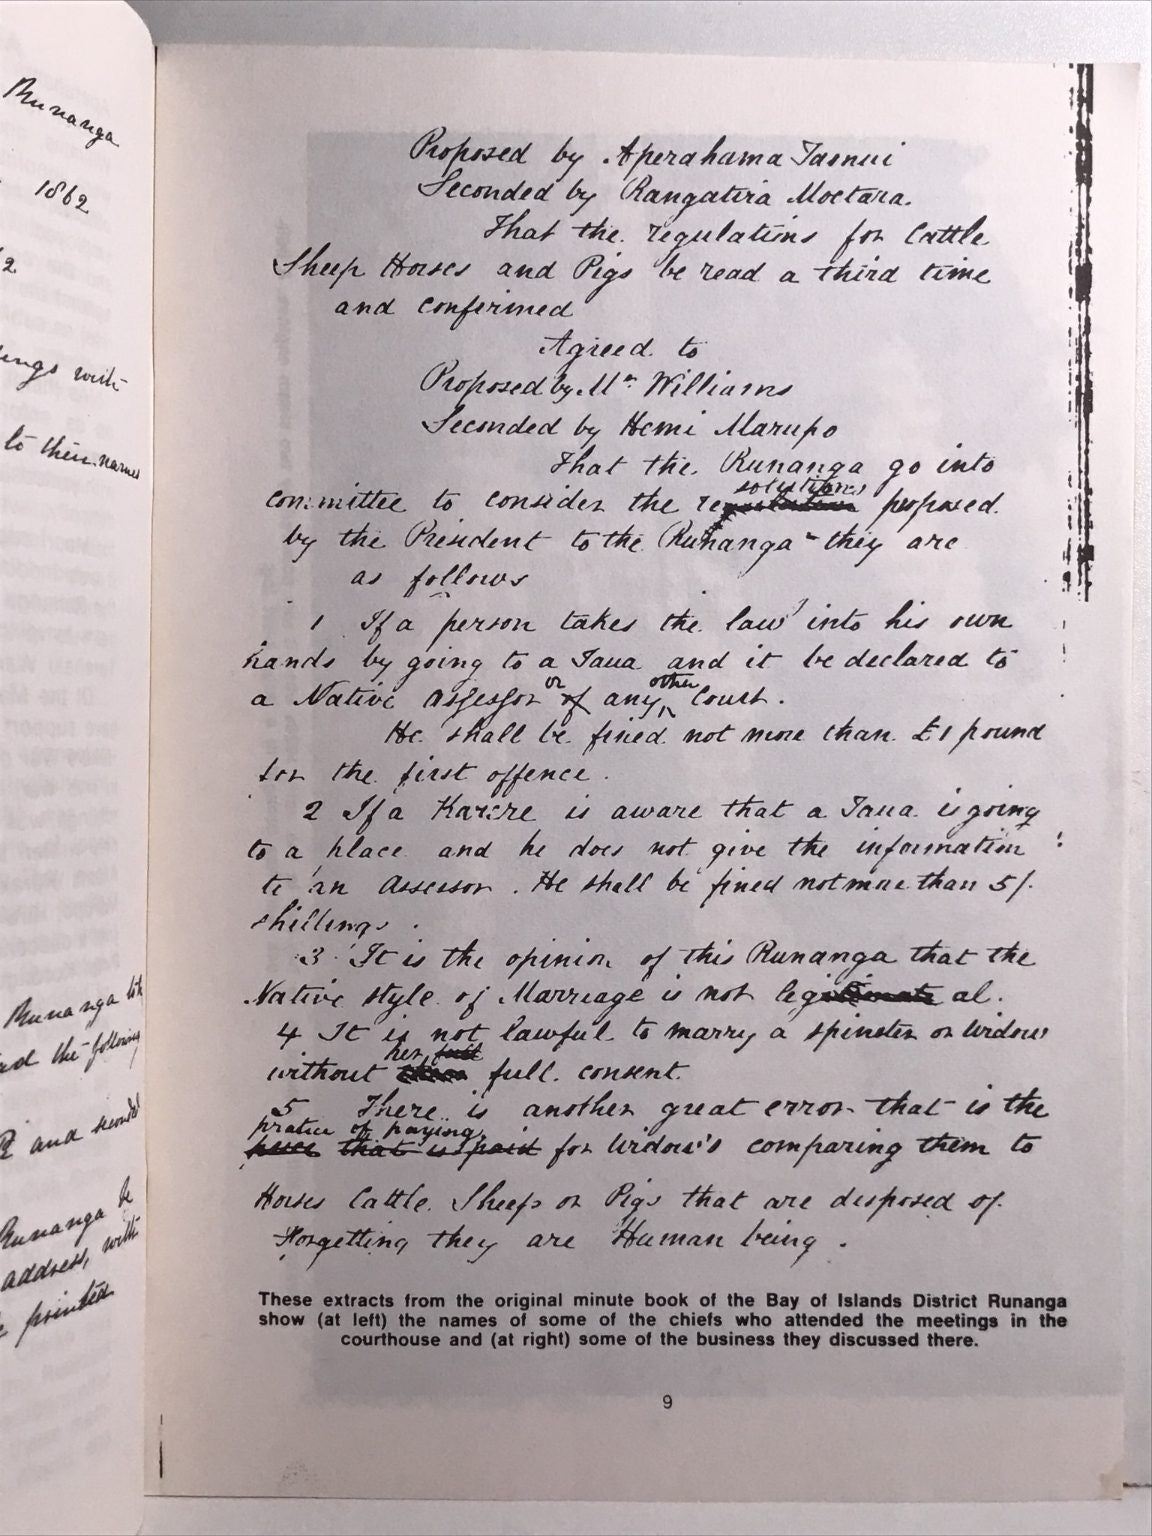 Runanga
1862
2
ings with
to their names
Runanga
the following
and seconded
Runanga be
address, with
printed
Proposed by Aperahama Taonui
Seconded by Rangatira Moetara.
That the regulations for Cattle
Sheep Horses and Pigs be read a third time
and confirmed
Agreed to
Proposed by Mr. Williams
Seconded by Hemi Marupo
That the Runanga go into
committee to consider the resolutions proposed
by the President to the Runanga - they are
as follows
1 If a person takes the law into his own
hands by going to a Taua and it be declared to
a Native Assessor or of any other Court.
He shall be fined not more than £1 pound
for the first offence.
2 If a Karere is aware that a Taua is going
to a place and he does not give the information
to an Assessor. He shall be fined not more than 5/.
shillings.
3 It is the opinion of this Runanga that the
Native style of Marriage is not legitimate al.
4 It is not lawful to marry a spinster or Widow
her full
without full consent.
5 There is another great error that is the
pratice of paying
price that is paid for Widow's comparing them to
Horses Cattle Sheep or Pigs that are disposed of.
Forgetting they are Human being.
These extracts from the original minute book of the Bay of Islands District Runanga
show (at left) the names of some of the chiefs who attended the meetings in the
courthouse and (at right) some of the business they discussed there.
9